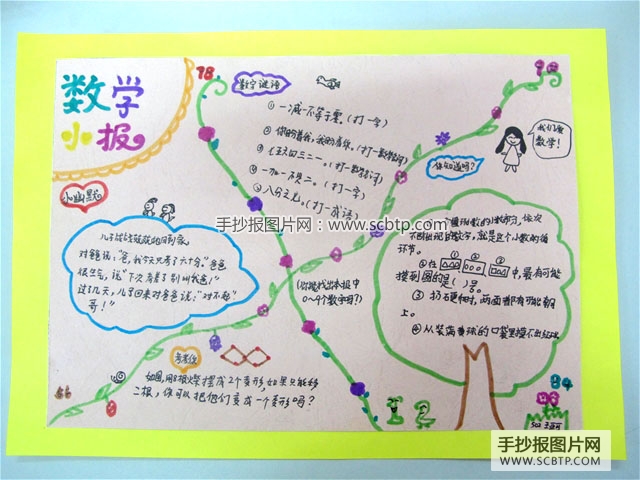 数学
小报
98
92
数字谜语
①一减一不等于零。(打一字)
②你盼着我,我盼着你。(打一数学名词)
③
④一加一不是二。(打一字)
⑤八分之七。(打一成语)
我们爱
数学!
你知道吗?
小幽默
儿子
对爸说:"爸,我今天只考了六十分。"爸爸
很生气,说"下次再考了别叫我爸!"
过了几天,儿子回来对爸爸说:"对不起
哥!"
手抄报图片网:www.scbtp.com
数的小数部分,依次
不断出现
就是这个小数的循
环节。
②在
①
②
③
中,最有可能
摸到圆的是( )号。
③扔硬币时,两面都有可能朝
上。
④从装满
球的口袋里摸不出红球
(你能找出本报中
0~9个数字吗?)
考考你
如图,用8根火柴摆成2个菱形,如果只能移
二根,你可以把他们变成一个菱形吗?
56
84
手抄报图片网
WWW.SCBTP.COM